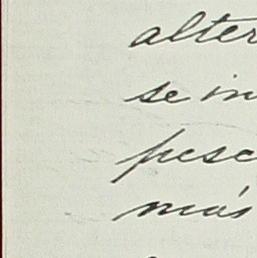 alter
se in
pesc
más